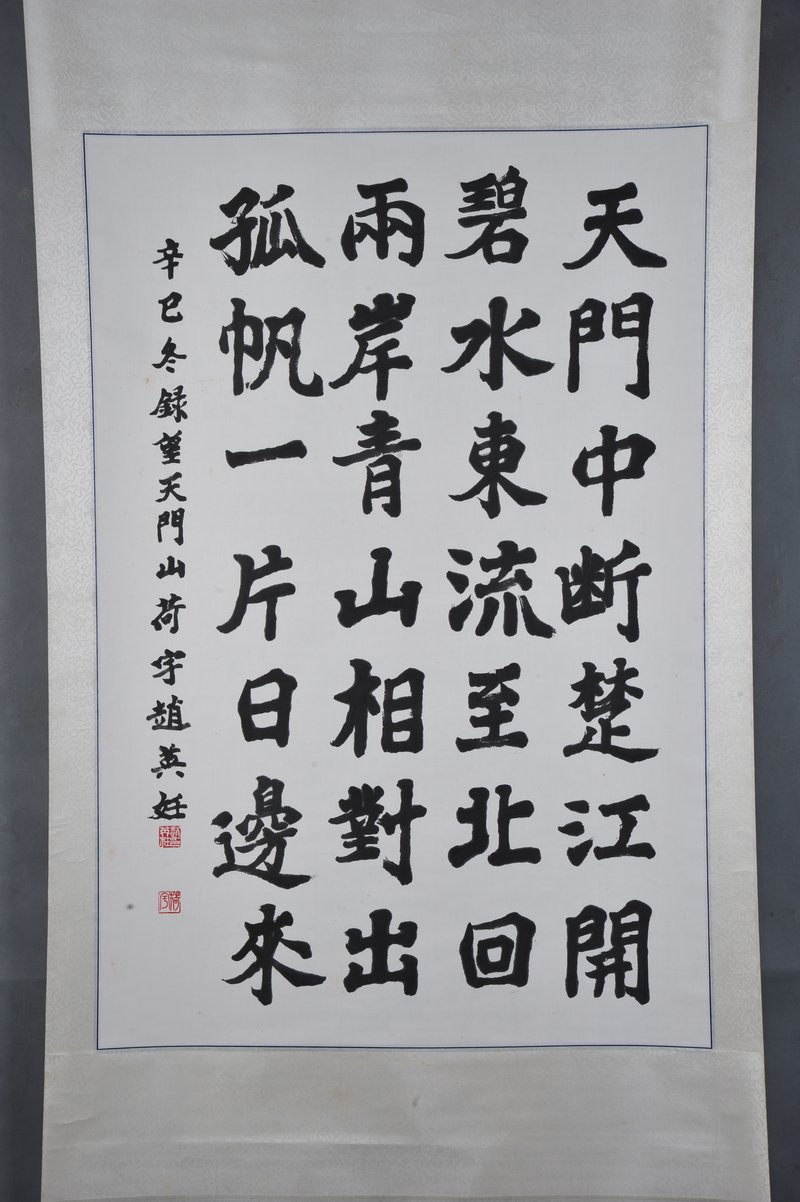 天門中断楚江開
碧水東流至北回
兩岸青山相對出
孤帆一片日邊來
辛巳冬録望天門山荷宇趙英妊